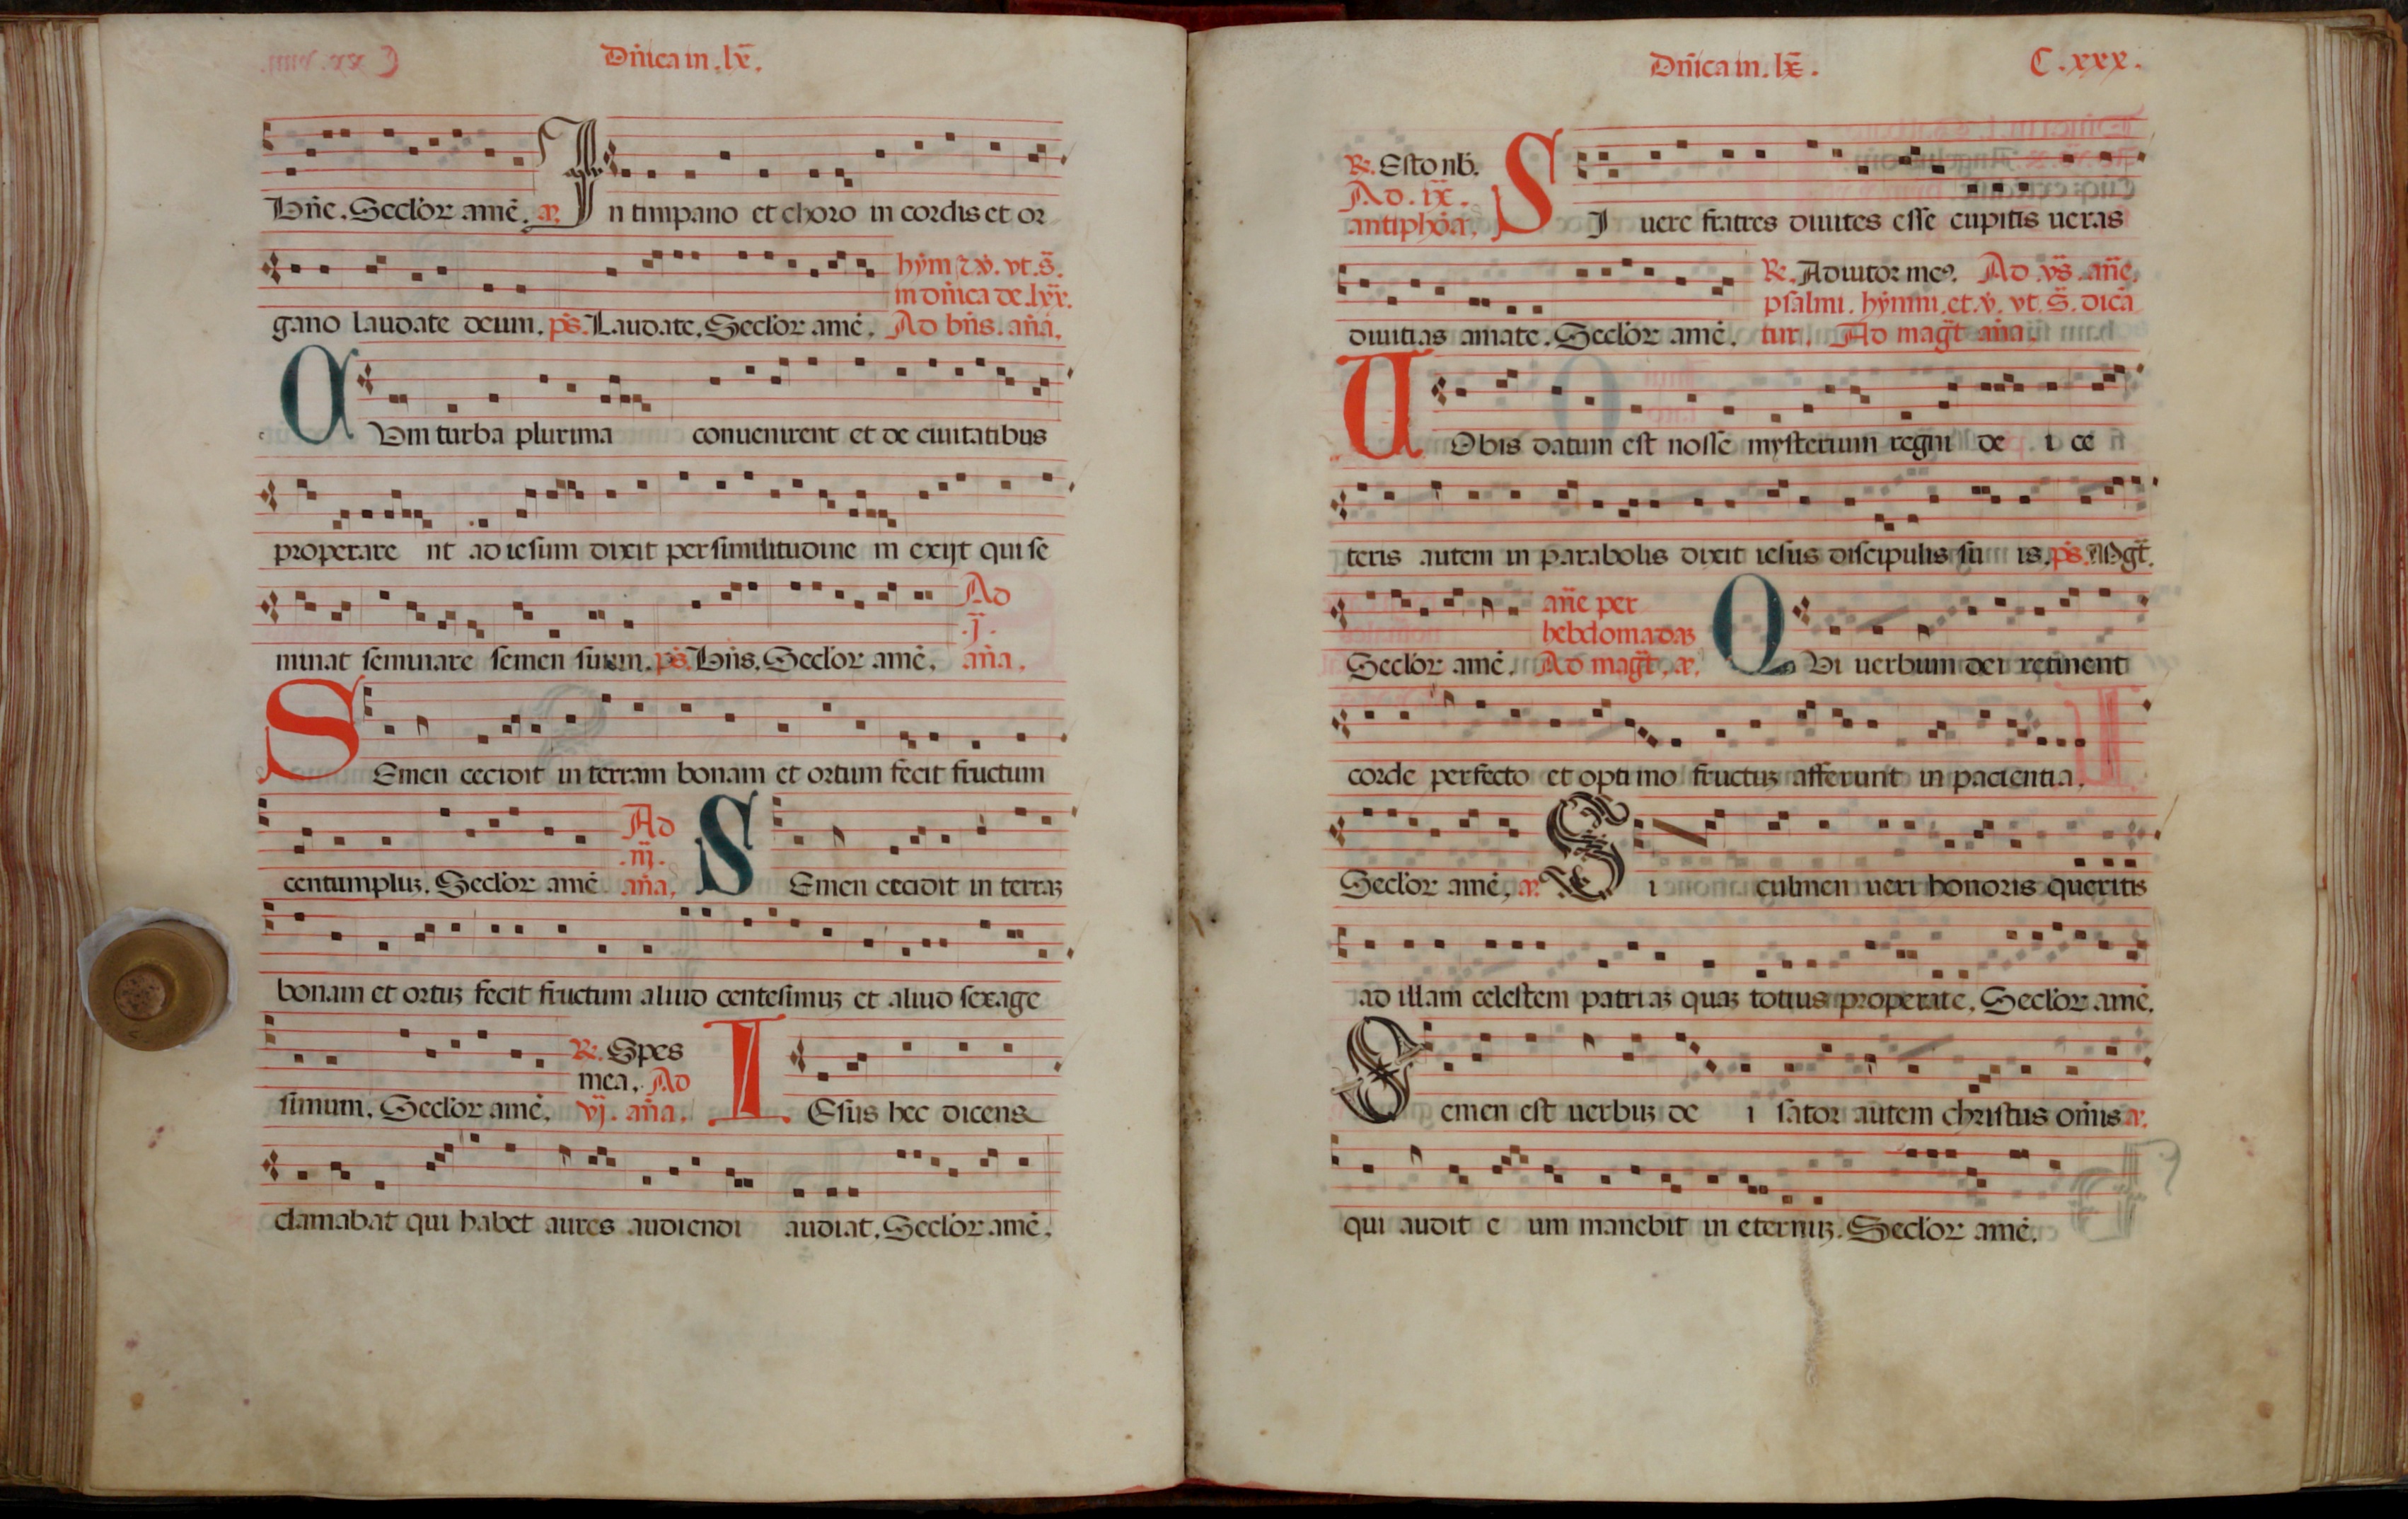 Dñica in .lx̄.
Bñe. Seclor̄ amē. añ. In timpano et choro in cordis et or
hȳm̄ ⁊ v̄. vt. s̄.
in dñica de .lxx̄.
gano laudate deum. ps̄. Laudate. Seclor̄ amē. Ad bñs. aña.
CVm turba plurima conuenirent et de ciuitatibus
properare nt ad iesum dixit per similitudinē in exijt qui se
Ad
.j̄.
minat seminare semen suum. ps̄. Bñs. Seclor̄ amē. aña.
SEmen cecidit in terram bonam et ortum fecit fructum
Ad
.iij̄.
centumpluꝫ. Seclor̄ amē. aña. SEmen cecidit in terraꝫ
bonam et ortuꝫ fecit fructum aliud centesimuꝫ et aliud sexage
℞. Spes
mea. Ad
simum. Seclor̄ amē. vj̄. aña. IEsus hec dicens
clamabat qui habet aures audiendi audiat. Seclor̄ amē.
Dñica in .lx̄. C.xxx.
℞. Esto nb̄.
Ad .ix̄.
antiphōa. SI vere fratres diuites esse cupitis ueras
℞. Adiutor meꝰ. Ad .vs̄. añe.
psalmi. hȳmni. et .v̄. vt. s̄. dicā
diuitias amate. Seclor̄ amē. tur. Ad magt̄ aña.
UObis datum est nosse mysterium regni de i ce
teris autem in parabolis dixit iesus discipulis su is. ps̄. Mgt̄.
añe per
hebdomadaꝫ
Seclor̄ amē. Ad magt̄. añ. QVi uerbum dei retinent
corde perfecto et opti mo fructuꝫ afferunt in pacientia.
Seclor̄ amē. añ. Si culmen ueri honoris queritis
ad illam celestem patriaꝫ quaꝫ totius properate. Seclor̄ amē.
Semen est uerbuꝫ de i sator autem christus om̄is añ.
qui audit e um manebit in eternuꝫ. Seclor̄ amē.